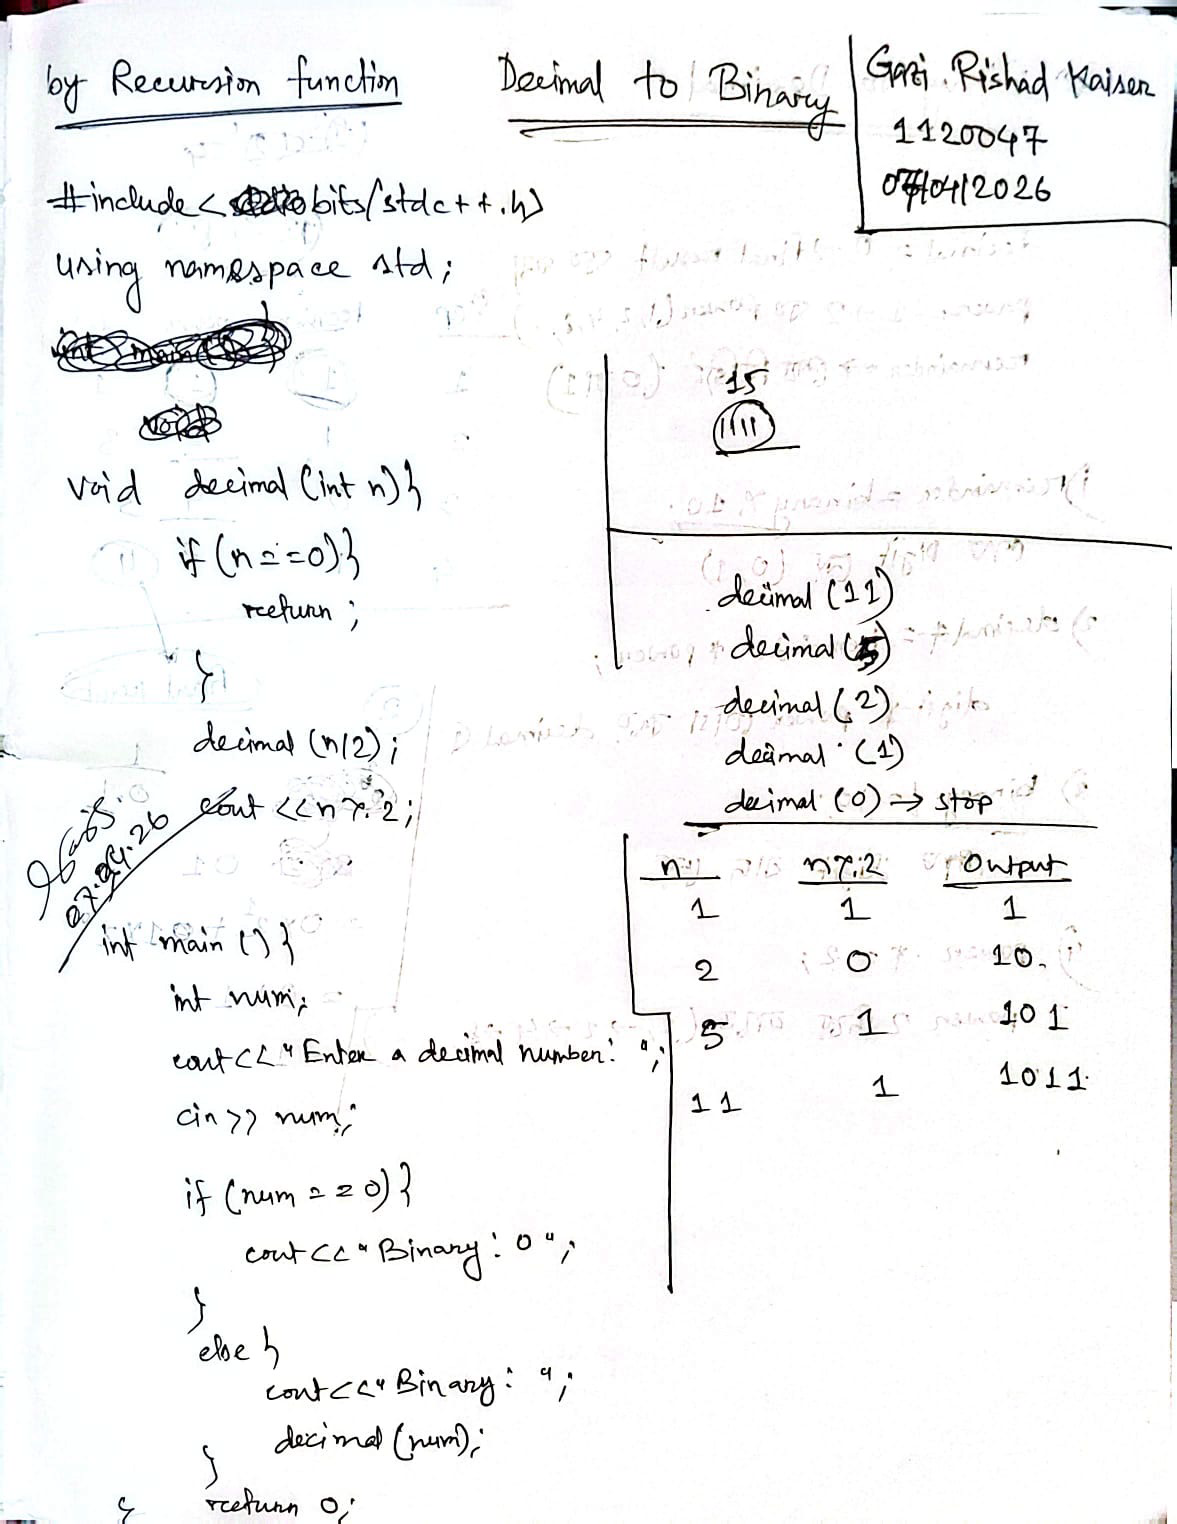 by Recursion function
Decimal to Binary
Gazi Rishad Kaiser
1120047
07/04/2026
#include <bits/stdc++.h>
using namespace std;
void decimal (int n) {
if (n==0) {
return ;
}
decimal (n/2);
cout <<n%2;
07.04.26
int main () {
int num;
cout<<"Enter a decimal number: ";
cin>> num;
if (num == 0) {
cout<<"Binary: 0";
}
else {
cout<<"Binary: ";
decimal (num);
}
return 0;
}
15
1111
decimal (11)
decimal (5)
decimal (2)
decimal (1)
decimal (0) → stop
n n%2 Output
1 1 1
2 0 10
5 1 101
11 1 1011